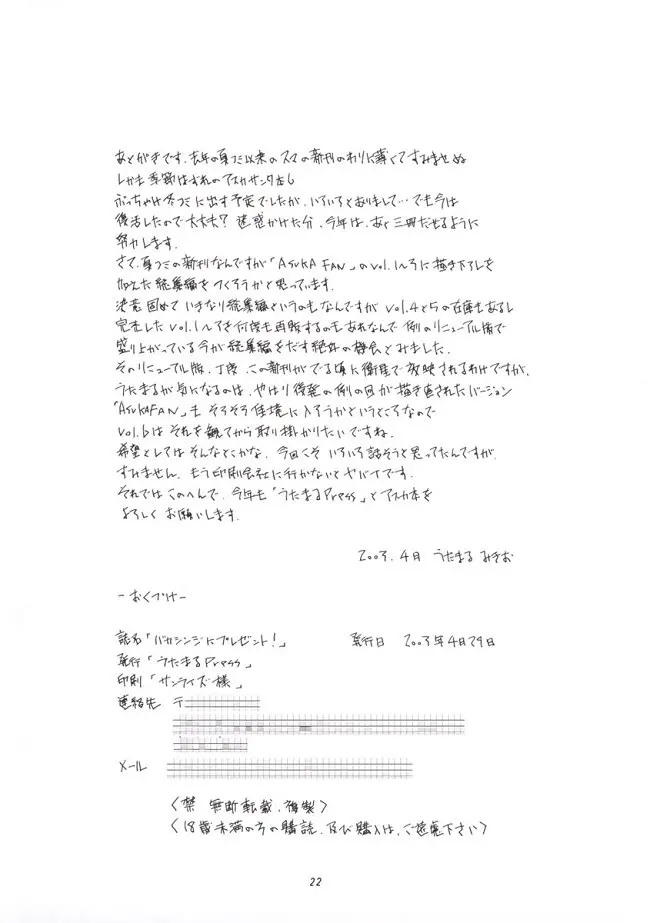 あとがきです、去年の夏コミ以来のアスカの新刊のわりに薄くてすみませぬ
しかも季節はずれのアスカサンタ本し
ぶっちゃけ冬コミに出す予定でしたが、いろいろとありまして…でも今は
復活したので大丈夫? 迷惑かけた分、今年は、あと三冊だせるように
努力します。
さて、夏コミの新刊なんですが「ASUKA FAN」のvol.1〜3に描き下ろしを
加えた総集編をつくろうかと思っています。
決意固めていきなり総集編というのもなんですが vol.4と5の在庫もあるし
完売したvol.1〜3を何度も再販するのもあれなんで 例のリニューアル版で
盛り上がっている今が総集編をだす絶好の機会とみました。
そのリニューアル版、丁度、この新刊がでる頃に衛星で放映されるわけですが、
うたまるが気になるのは、やはり後発の例の回が描き直されたバージョン
「ASUKAFAN」もそろそろ佳境に入ろうかというところなので
vol.6はそれを観てから取り掛かりたいですね。
希望としてはそんなとこかな、今回こそいろいろ話そうと思ってたんですが、
すみません、もう印刷会社に行かないとヤバイです。
それではこのへんで、今年も「うたまるPress」とアスカ本を
よろしくお願いします。
2003.4月 うたまる みきお
-おくづけ-
誌名「バカシンジにプレゼント!」 発行日 2003年4月29日
発行「うたまるPress」
印刷「サンライズ様」
連絡先 〒
メール
〈禁 無断転載、複製〉
〈18歳未満の方の購読、及び購入は、ご遠慮下さい〉
22